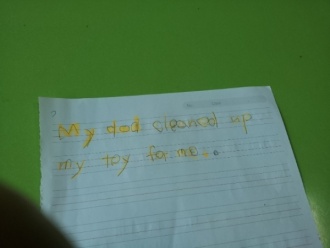 My dad cleaned up
my toy for me..